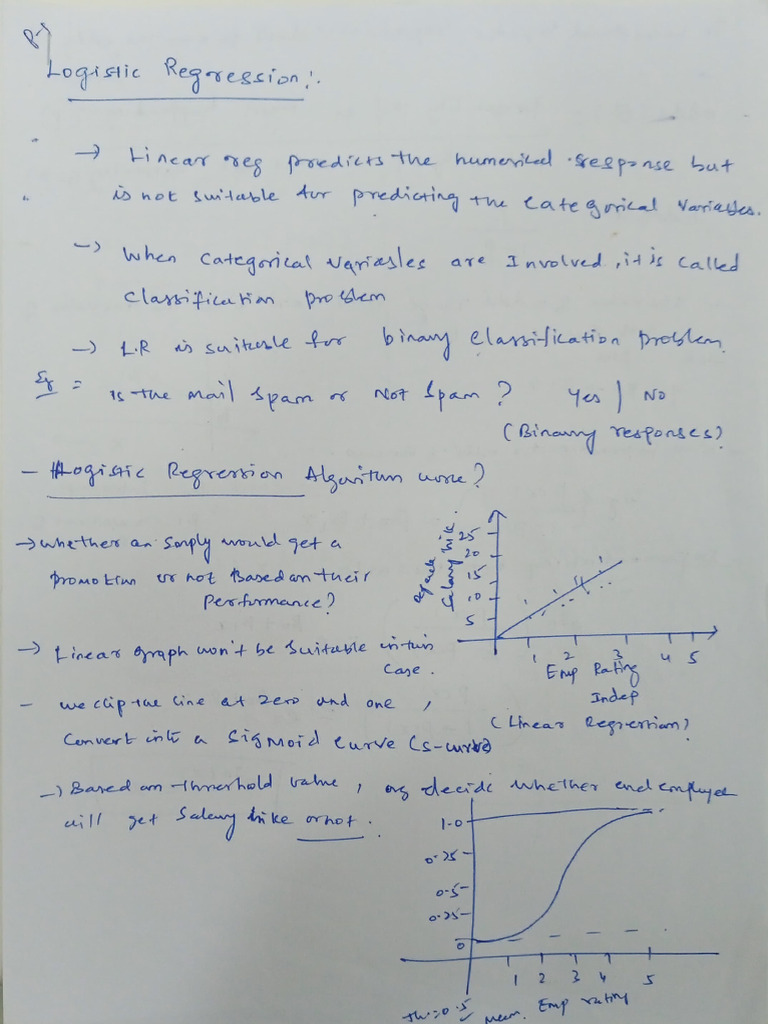 Logistic Regression:
→ Linear reg predicts the numerical response but
is not suitable for predicting the categorical variables.
→ When categorical variables are Involved, it is called
classification problem
→ L.R is suitable for binary classification problem.
Eg = Is the mail spam or Not spam? Yes | No
(Binary responses)
- Logistic Regression Algoritum work?
→ whether an would get a
promotion or not Based on their
Performance?
25
20
15
10
5
Salary hike.
1 2 3 4 5
Emp Rating
Indep
(Linear Regression)
→ Linear graph won't be suitable in this
case.
- we clip the line at zero and one,
Convert into a sigmoid curve (s-curve)
→ Based on threshold value, decide whether employee
will get salary hike or not.
1.0
0.25
0.5
0.25
0
1 2 3 4 5
Emp rating
Th.=0.5